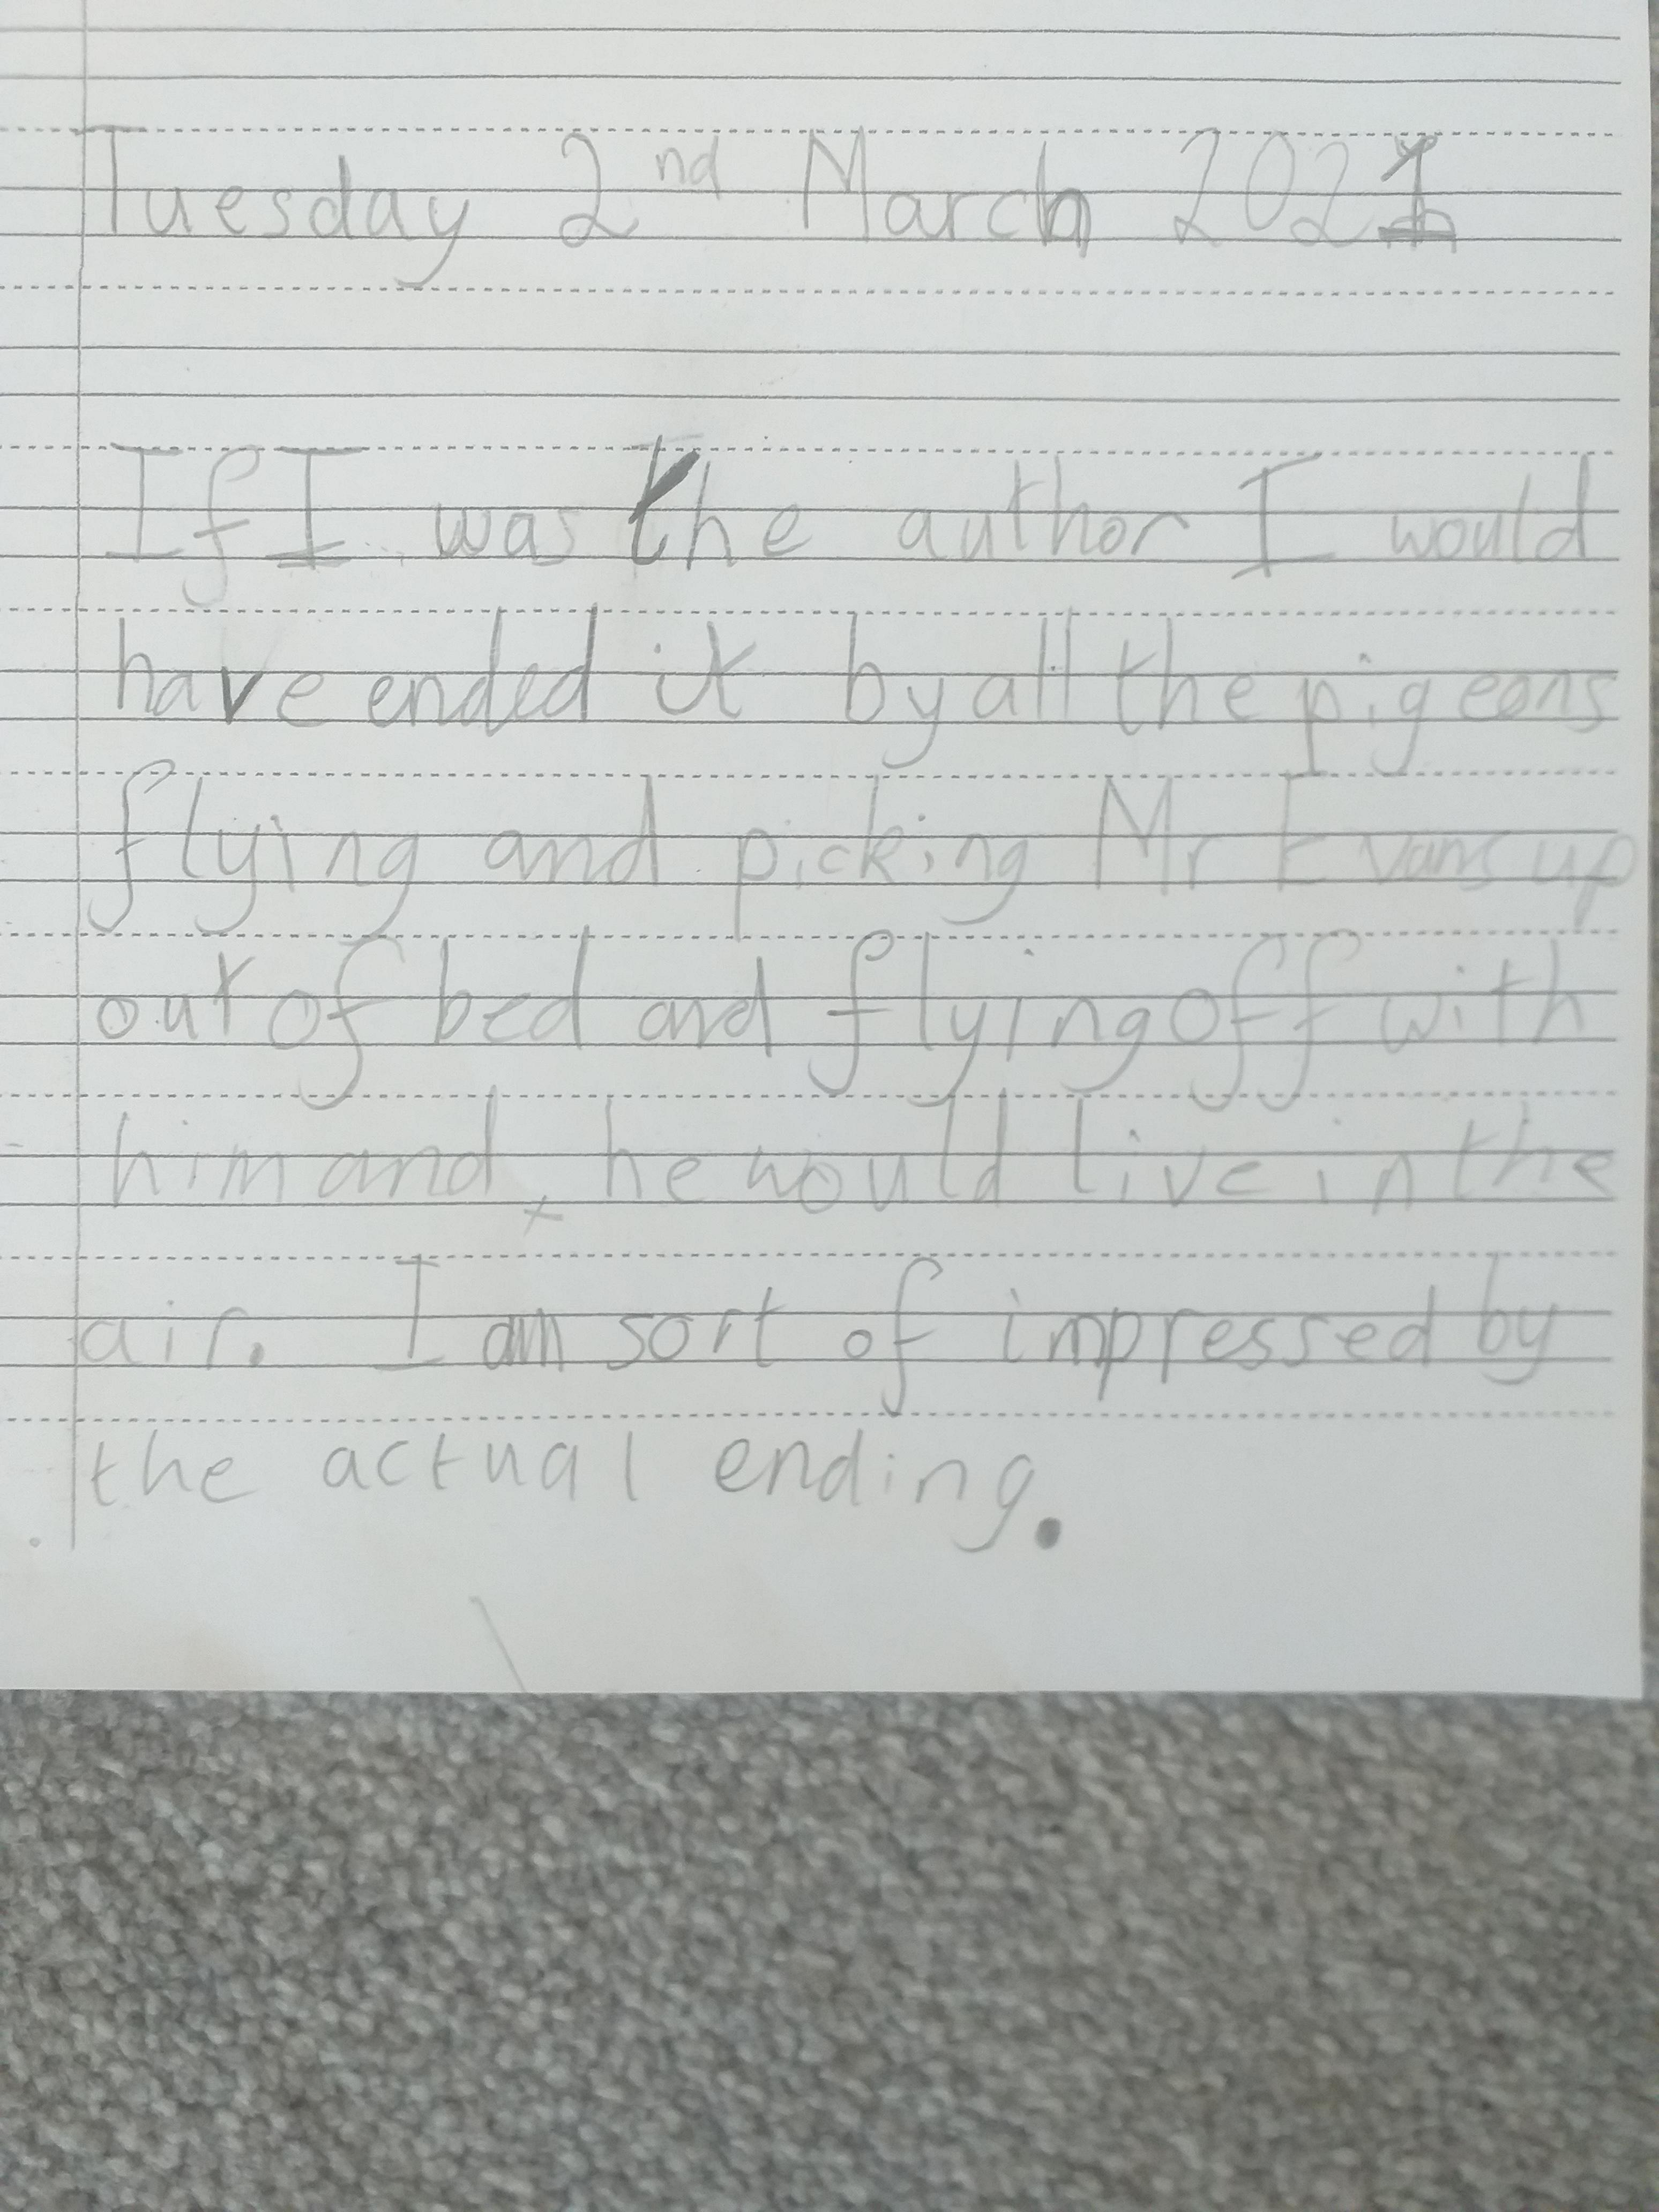 Tuesday 2nd March 2021
If I was the author I would
have ended it by all the pigeons
flying and picking Mr Evans up
out of bed and flying off with
him and he would live in the
air. I am sort of impressed by
the actual ending.